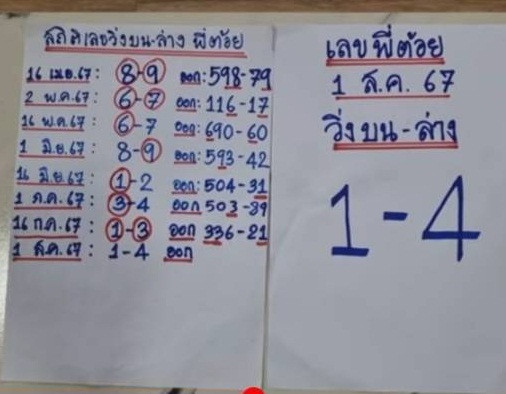 สถิติเลขวิ่งบน-ล่าง พี่ต้อย
16 เมย.67: 8-9 ออก: 598-79
2 พ.ค.67: 6-7 ออก: 116-17
16 พ.ค.67: 6-7 ออก: 690-60
1 มิ.ย.67: 8-9 ออก: 593-42
16 มิ.ย.67: 1-2 ออก: 504-31
1 ก.ค.67: 3-4 ออก 503-89
16 ก.ค.67: 1-3 ออก 336-21
1 ส.ค.67: 1-4 ออก
เลขพี่ต้อย
1 ส.ค. 67
วิ่งบน-ล่าง
1-4